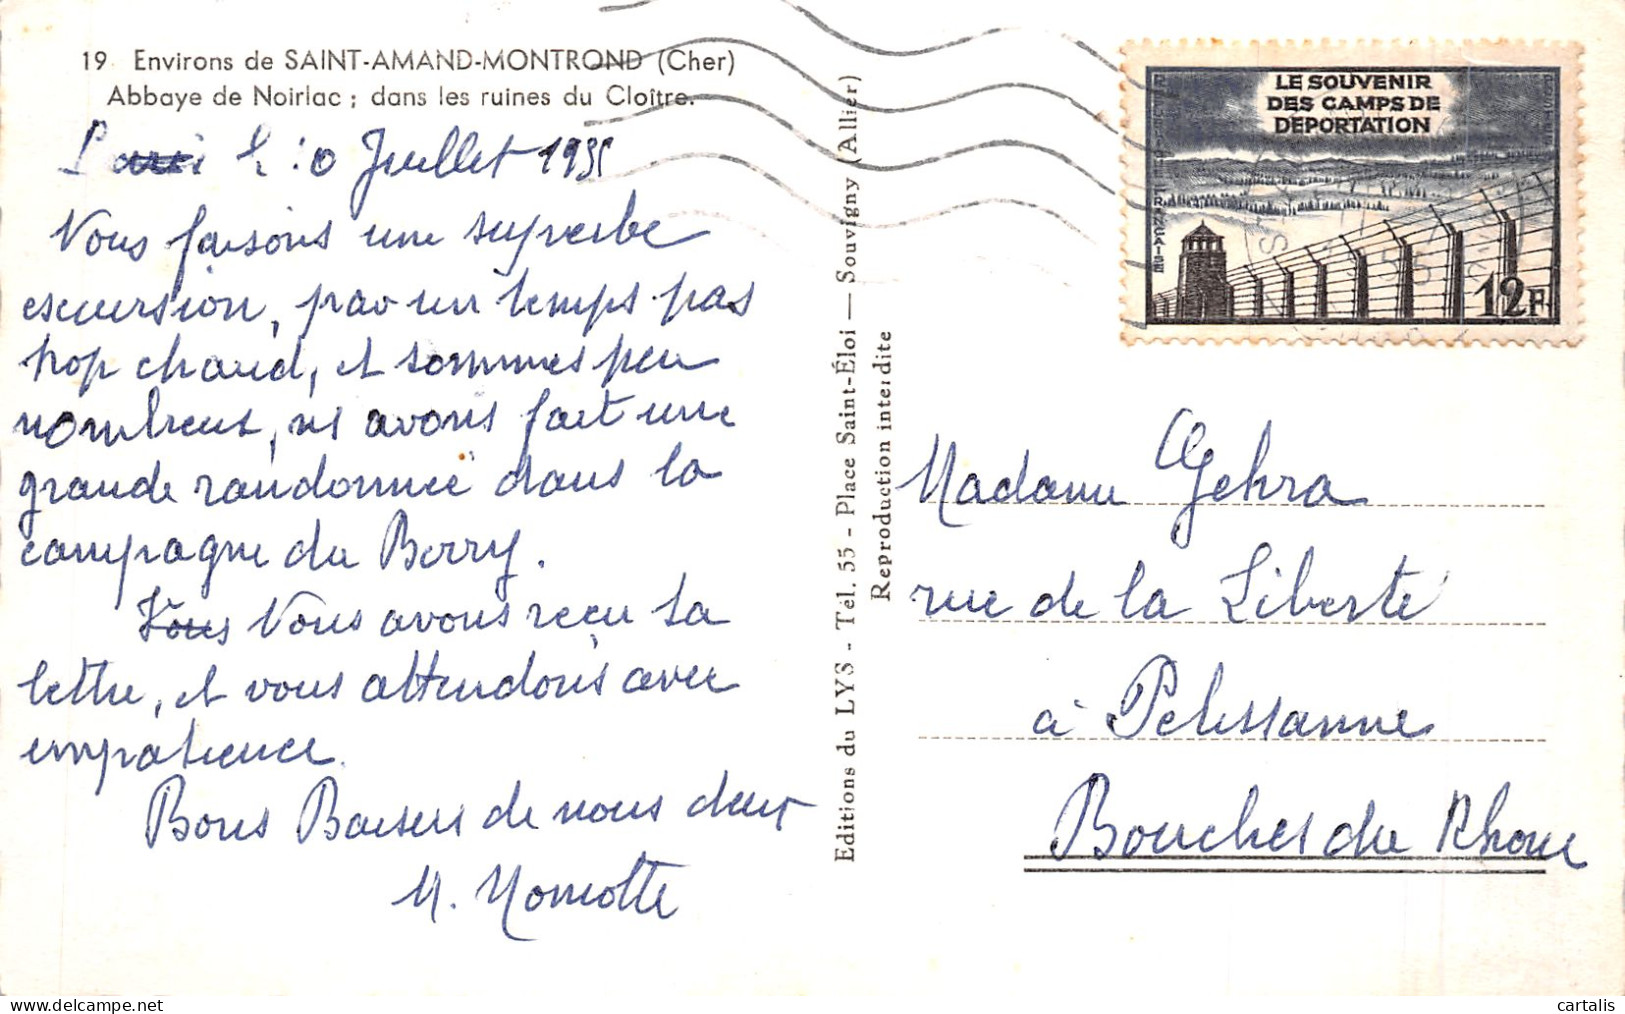 19 Environs de SAINT-AMAND-MONTROND (Cher)
Abbaye de Noirlac ; dans les ruines du Cloître.
le 10 Juillet 1955
Nous faisons une superbe
excursion, par un temps pas
trop chaud, et sommes peu
nombreux, ns avons fait une
grande randonnée dans la
campagne du Berry.
Nous avons reçu ta
lettre, et vous attendons avec
impatience.
Bons Baisers de nous deux
M.
Editions du LYS - Tél. 55 - Place Saint-Éloi — Souvigny (Allier)
Reproduction interdite
LE SOUVENIR
DES CAMPS DE
DÉPORTATION
REPUBLIQUE FRANÇAISE
12F
Madame Gehra
rue de la Liberté
à Pelissanne
Bouches du Rhone
cartalis